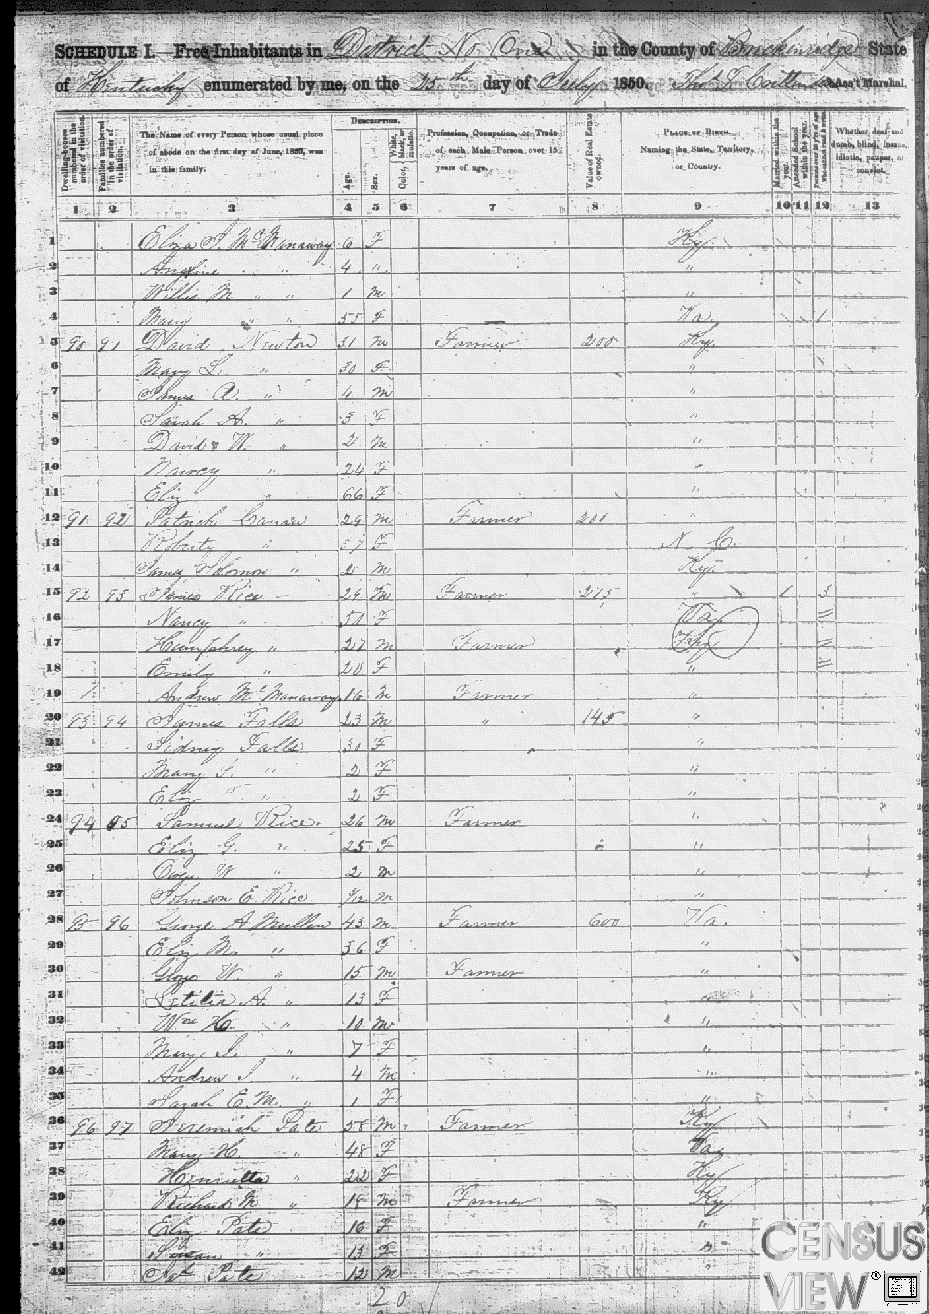 SCHEDULE I. Free Inhabitants in District No. One in the County of Breckenridge State
of Kentucky enumerated by me, on the 25th day of July 1850. Ass't Marshal.
Dwelling-houses numbered in the order of visitation.
Families numbered in the order of visitation.
The Name of every Person whose usual place of abode on the first day of June, 1850, was in this family.
DESCRIPTION.
Age.
Sex.
Color, White, black, or mulatto.
Profession, Occupation, or Trade of each Male Person over 15 years of age.
Value of Real Estate owned.
PLACE OF BIRTH. Naming the State, Territory, or Country.
Married within the year.
Attended School within the year.
Whether deaf and dumb, blind, insane, idiotic, pauper, or convict.
1 2 3 4 5 6 7 8 9 10 11 12 13
1 McManaway 6 F Ky.
2 " " 4 " "
3 Willis M " " 1 M "
4 Mary " " 55 F Va. 1
5 90 91 David Newton 31 M Farmer 200 Ky.
6 Mary L. " 30 F "
7 James A. " 4 M "
8 Sarah A. " 3 F "
9 David W. " 2 M "
10 Nancy " 24 F "
11 Eliz " 66 F "
12 91 92 Patrick 29 M Farmer 200 "
13 " F N. C.
14 James Solomon " 2 M Ky.
15 92 93 James Rice 29 M Farmer 275 " 1
16 Nancy " 51 F Va
17 Humphrey " 27 M Farmer Ky
18 Emily " 20 F "
19 Andrew McManaway 16 M Farmer "
20 93 94 James Falls 23 M " 145 "
21 Sidney Falls 30 F "
22 Mary " 2 F "
23 Eliz " 2 F "
24 94 95 Samuel Rice 26 M Farmer "
25 Eliz G. " 25 F "
26 W " 2 M "
27 Johnson E Rice M "
28 95 96 George A Mullen 43 M Farmer 600 Va.
29 Eliz M. " 36 F "
30 Geo W. " 15 M Farmer "
31 Letitia A. " 13 F "
32 Wm H. " 10 M "
33 Mary " 7 F "
34 Andrew J " 4 M "
35 Sarah E. M. " 1 F "
36 96 97 Jeremiah Pate 58 M Farmer Ky
37 Mary H. " 48 F Va.
38 Henrietta " 22 F Ky
39 Richard M " 18 M Farmer Ky
40 Eliz Pate 16 F "
41 Susan " 13 F "
42 Pate 12 M "
20
CENSUS
VIEW®